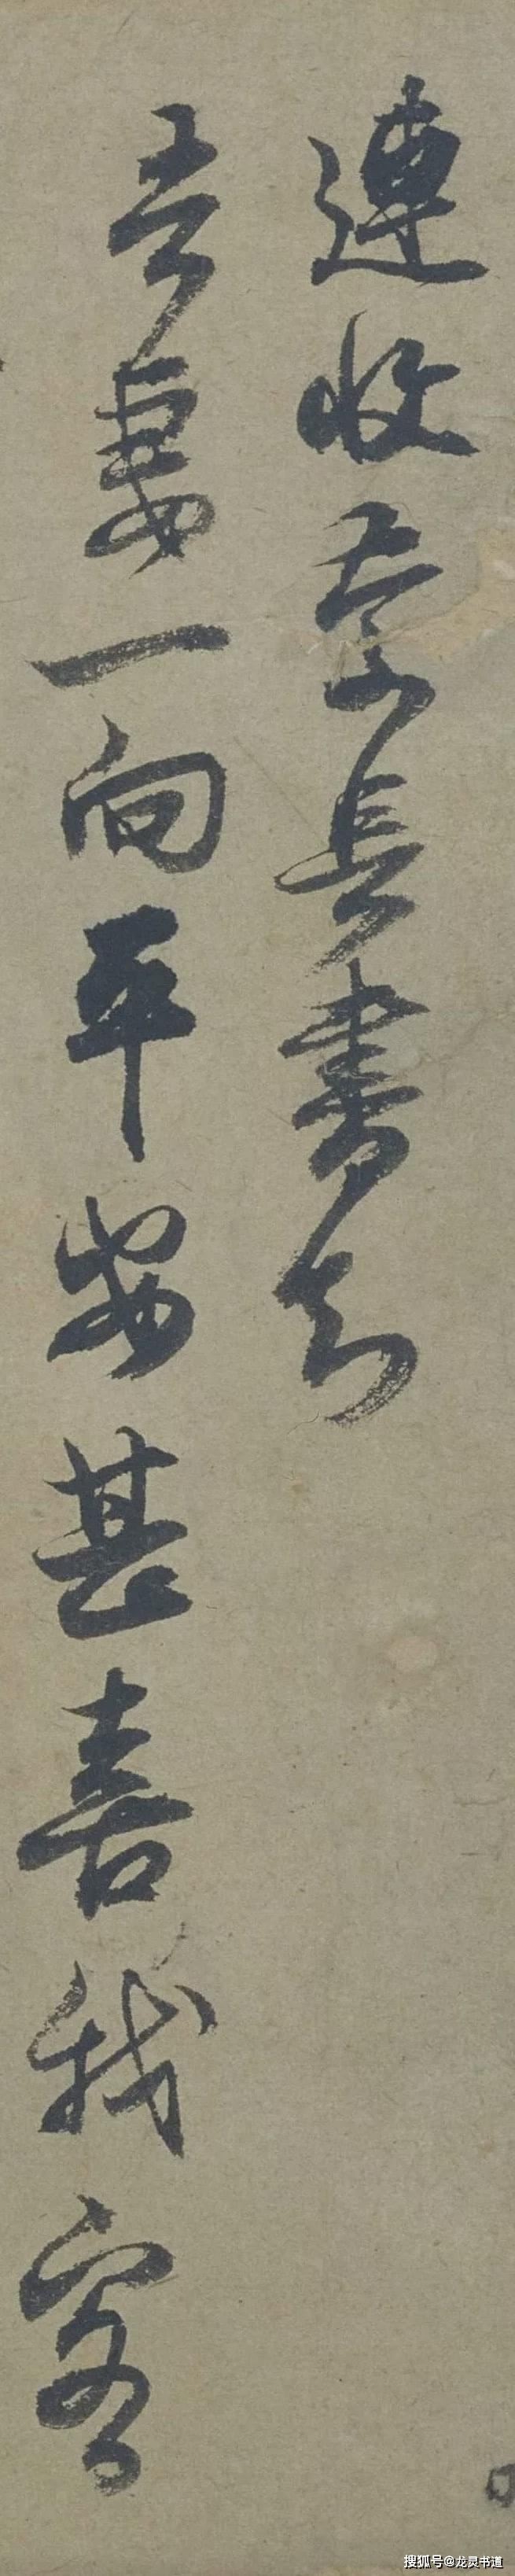 連收李長書知
吾妻一向平安甚喜我客
搜狐号@龙灵书道